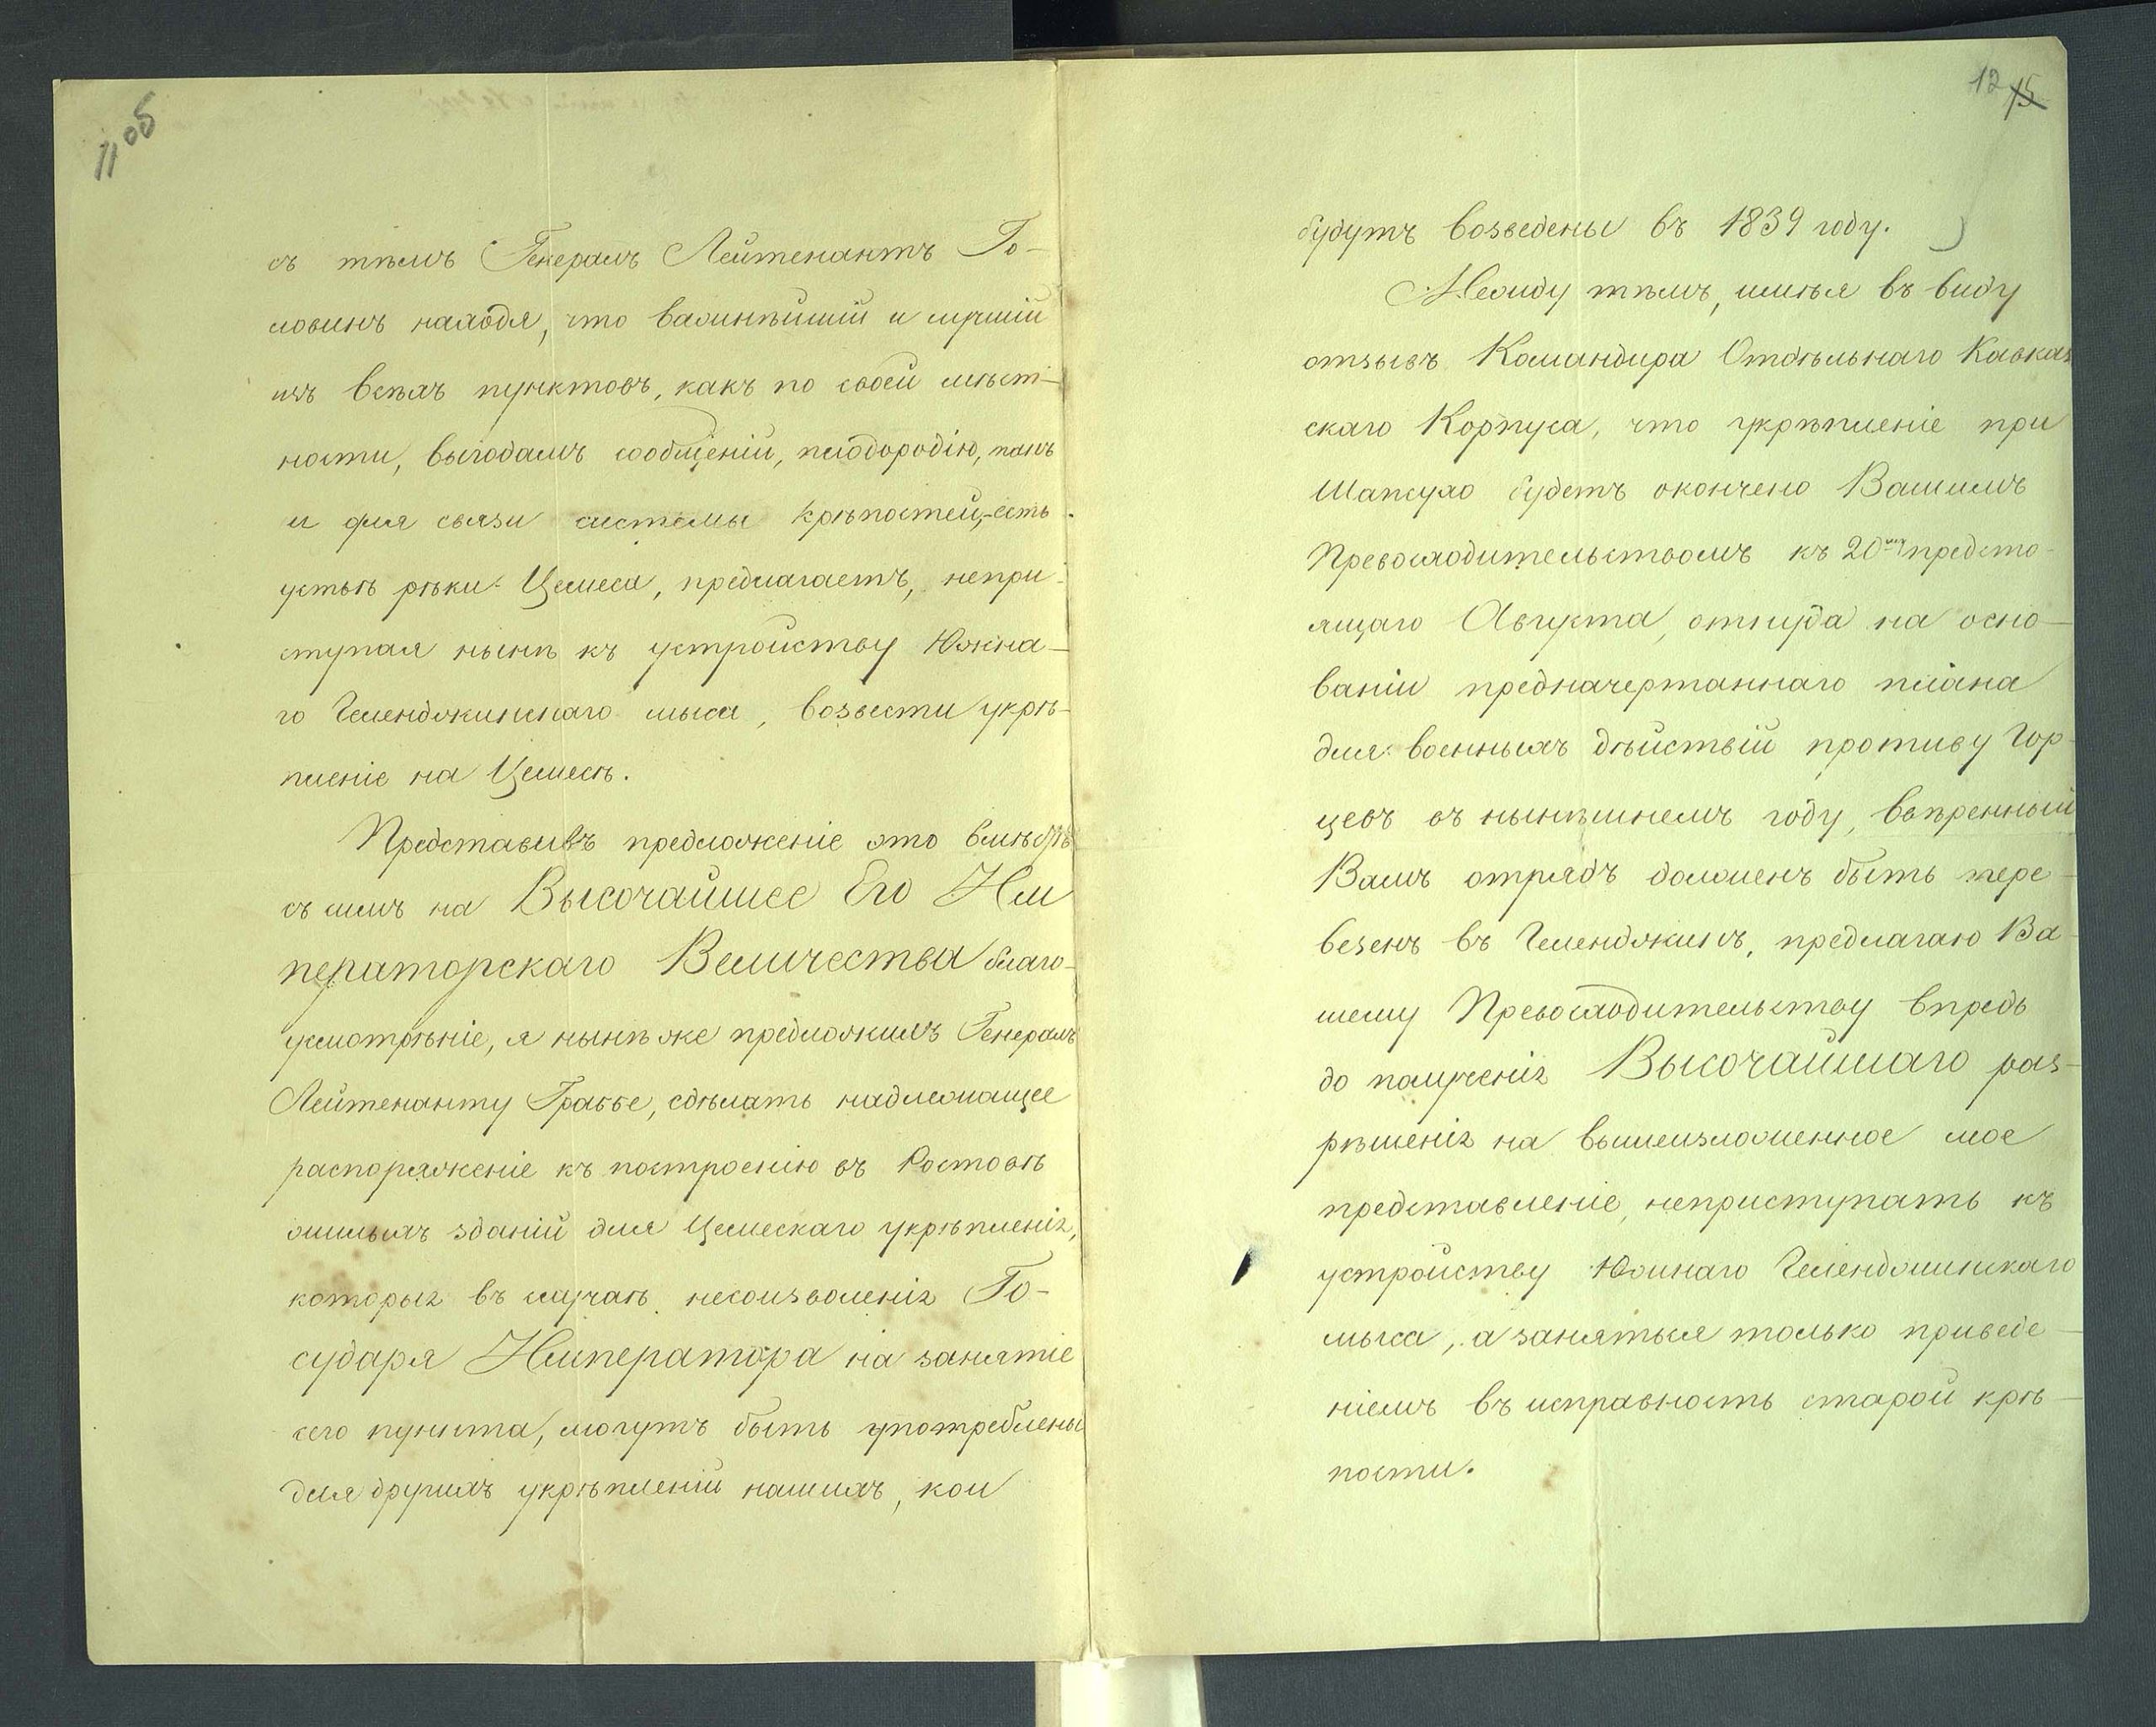 11 об
съ тѣмъ Генералъ Лейтенантъ Го-
ловинъ находя, что важнѣйшій и лучшій
изъ всѣхъ пунктовъ, какъ по своей мѣст-
ности, выгодамъ сообщеній, плодородію, такъ
и для связи системы крѣпостей,-есть
устье рѣки Цемеса, предлагаетъ, непри-
ступая нынѣ къ устройству Южна-
го Геленджикскаго мыса, возвести укрѣ-
пленіе на Цемесѣ.
Представивъ предложеніе это вмѣстѣ
съ симъ на Высочайшее Его Им
ператорскаго Величества благо-
усмотрѣніе, я нынѣ же предложилъ Генералъ
Лейтенанту Граббе, сдѣлать надлежащее
распоряженіе къ построенію въ Ростовѣ
жилыхъ зданій для Цемескаго укрѣпленія,
которыя въ случаѣ несоизволенія Го-
сударя Императора на занятіе
сего пункта, могутъ быть употреблены
для другихъ укрѣпленій нашихъ, кои
12 15
будутъ возведены въ 1839 году.
Между тѣмъ, имѣя въ виду
отзывъ Командира Отдѣльнаго Кавказ
скаго Корпуса, что укрѣпленіе при
Шапсухо будетъ окончено Вашимъ
Превосходительствомъ къ 20му предсто-
ящаго Августа, откуда на осно-
ваніи предначертаннаго плана
для военныхъ дѣйствій противу Гор-
цевъ въ нынѣшнемъ году, ввѣренный
Вамъ отрядъ долженъ быть пере-
везенъ въ Геленджикъ, предлагаю Ва-
шему Превосходительству впредь
до полученія Высочайшаго раз-
рѣшенія на вышеизложенное мое
представленіе, неприступать къ
устройству Южнаго Геленджикскаго
мыса, а заняться только приведе-
ніемъ въ исправность старой крѣ-
пости.